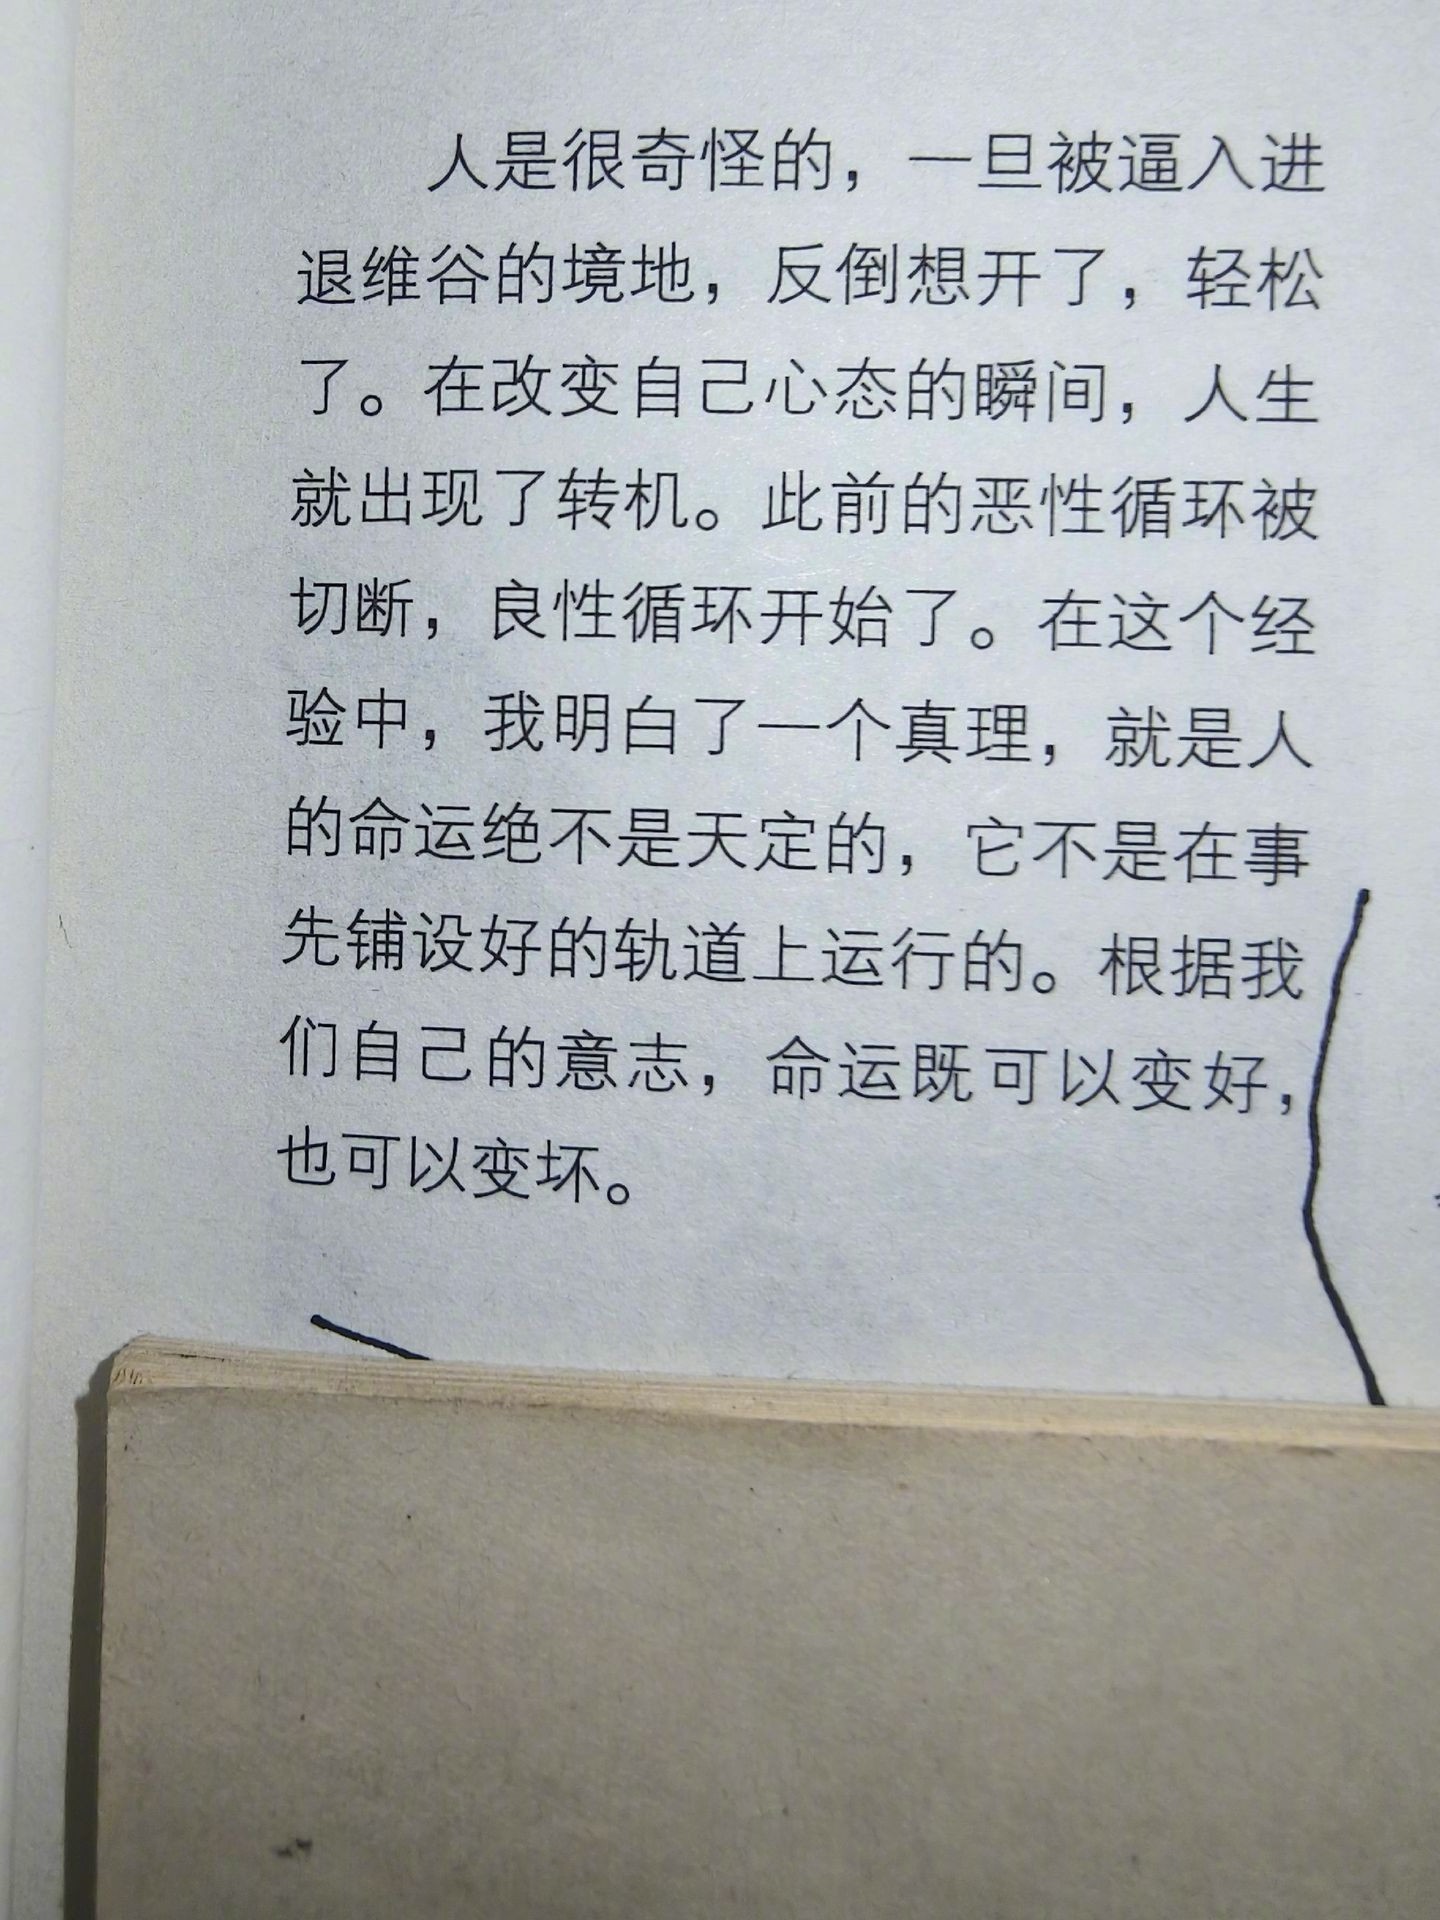 人是很奇怪的，一旦被逼入进
退维谷的境地，反倒想开了，轻松
了。在改变自己心态的瞬间，人生
就出现了转机。此前的恶性循环被
切断，良性循环开始了。在这个经
验中，我明白了一个真理，就是人
的命运绝不是天定的，它不是在事
先铺设好的轨道上运行的。根据我
们自己的意志，命运既可以变好，
也可以变坏。